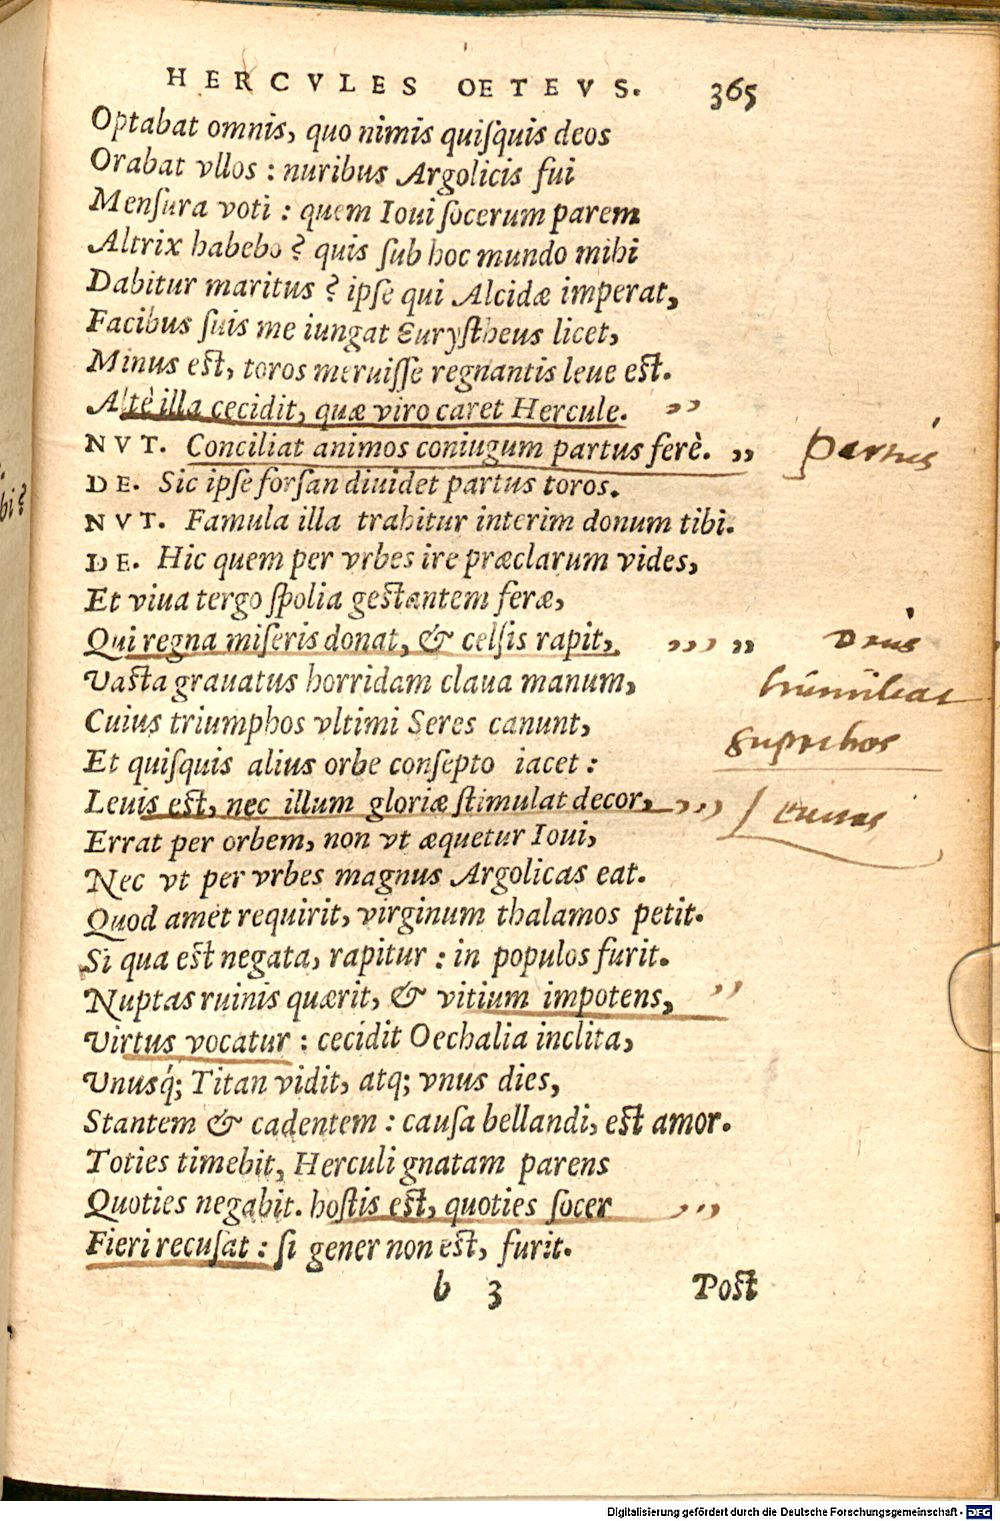 HERCVLES OETEVS. 365
Optabat omnis, quo nimis quiſquis deos
Orabat vllos : nuribus Argolicis fui
Menſura voti : quem Ioui ſocerum parem
Altrix habebo ? quis ſub hoc mundo mihi
Dabitur maritus ? ipſe qui Alcidæ imperat,
Facibus ſuis me iungat Euryſtheus licet,
Minus eſt, toros meruiſſe regnantis leue eſt.
Altè illa cecidit, quæ viro caret Hercule. ,,
NVT. Conciliat animos coniugum partus ferè. ,, partus
DE. Sic ipſe forſan diuidet partus toros.
NVT. Famula illa trahitur interim donum tibi.
DE. Hic quem per vrbes ire præclarum vides,
Et viua tergo ſpolia geſtantem feræ,
Qui regna miſeris donat, & celſis rapit, ,,, ,, Deus
Vaſta grauatus horridam claua manum, humiliat
Cuius triumphos vltimi Seres canunt, superbos
Et quiſquis alius orbe conſepto iacet :
Leuis eſt, nec illum gloriæ ſtimulat decor, ,,,
Errat per orbem, non vt æquetur Ioui,
Nec vt per vrbes magnus Argolicas eat.
Quod amet requirit, virginum thalamos petit.
Si qua eſt negata, rapitur : in populos furit.
Nuptas ruinis quærit, & vitium impotens, ,,
Virtus vocatur : cecidit Oechalia inclita,
Vnusq́; Titan vidit, atq; vnus dies,
Stantem & cadentem : cauſa bellandi, eſt amor.
Toties timebit, Herculi gnatam parens
Quoties negabit. hoſtis eſt, quoties ſocer ,,,
Fieri recuſat : ſi gener non eſt, furit.
b 3 Poſt
bi ?
Digitalisierung gefördert durch die Deutsche Forschungsgemeinschaft - DFG